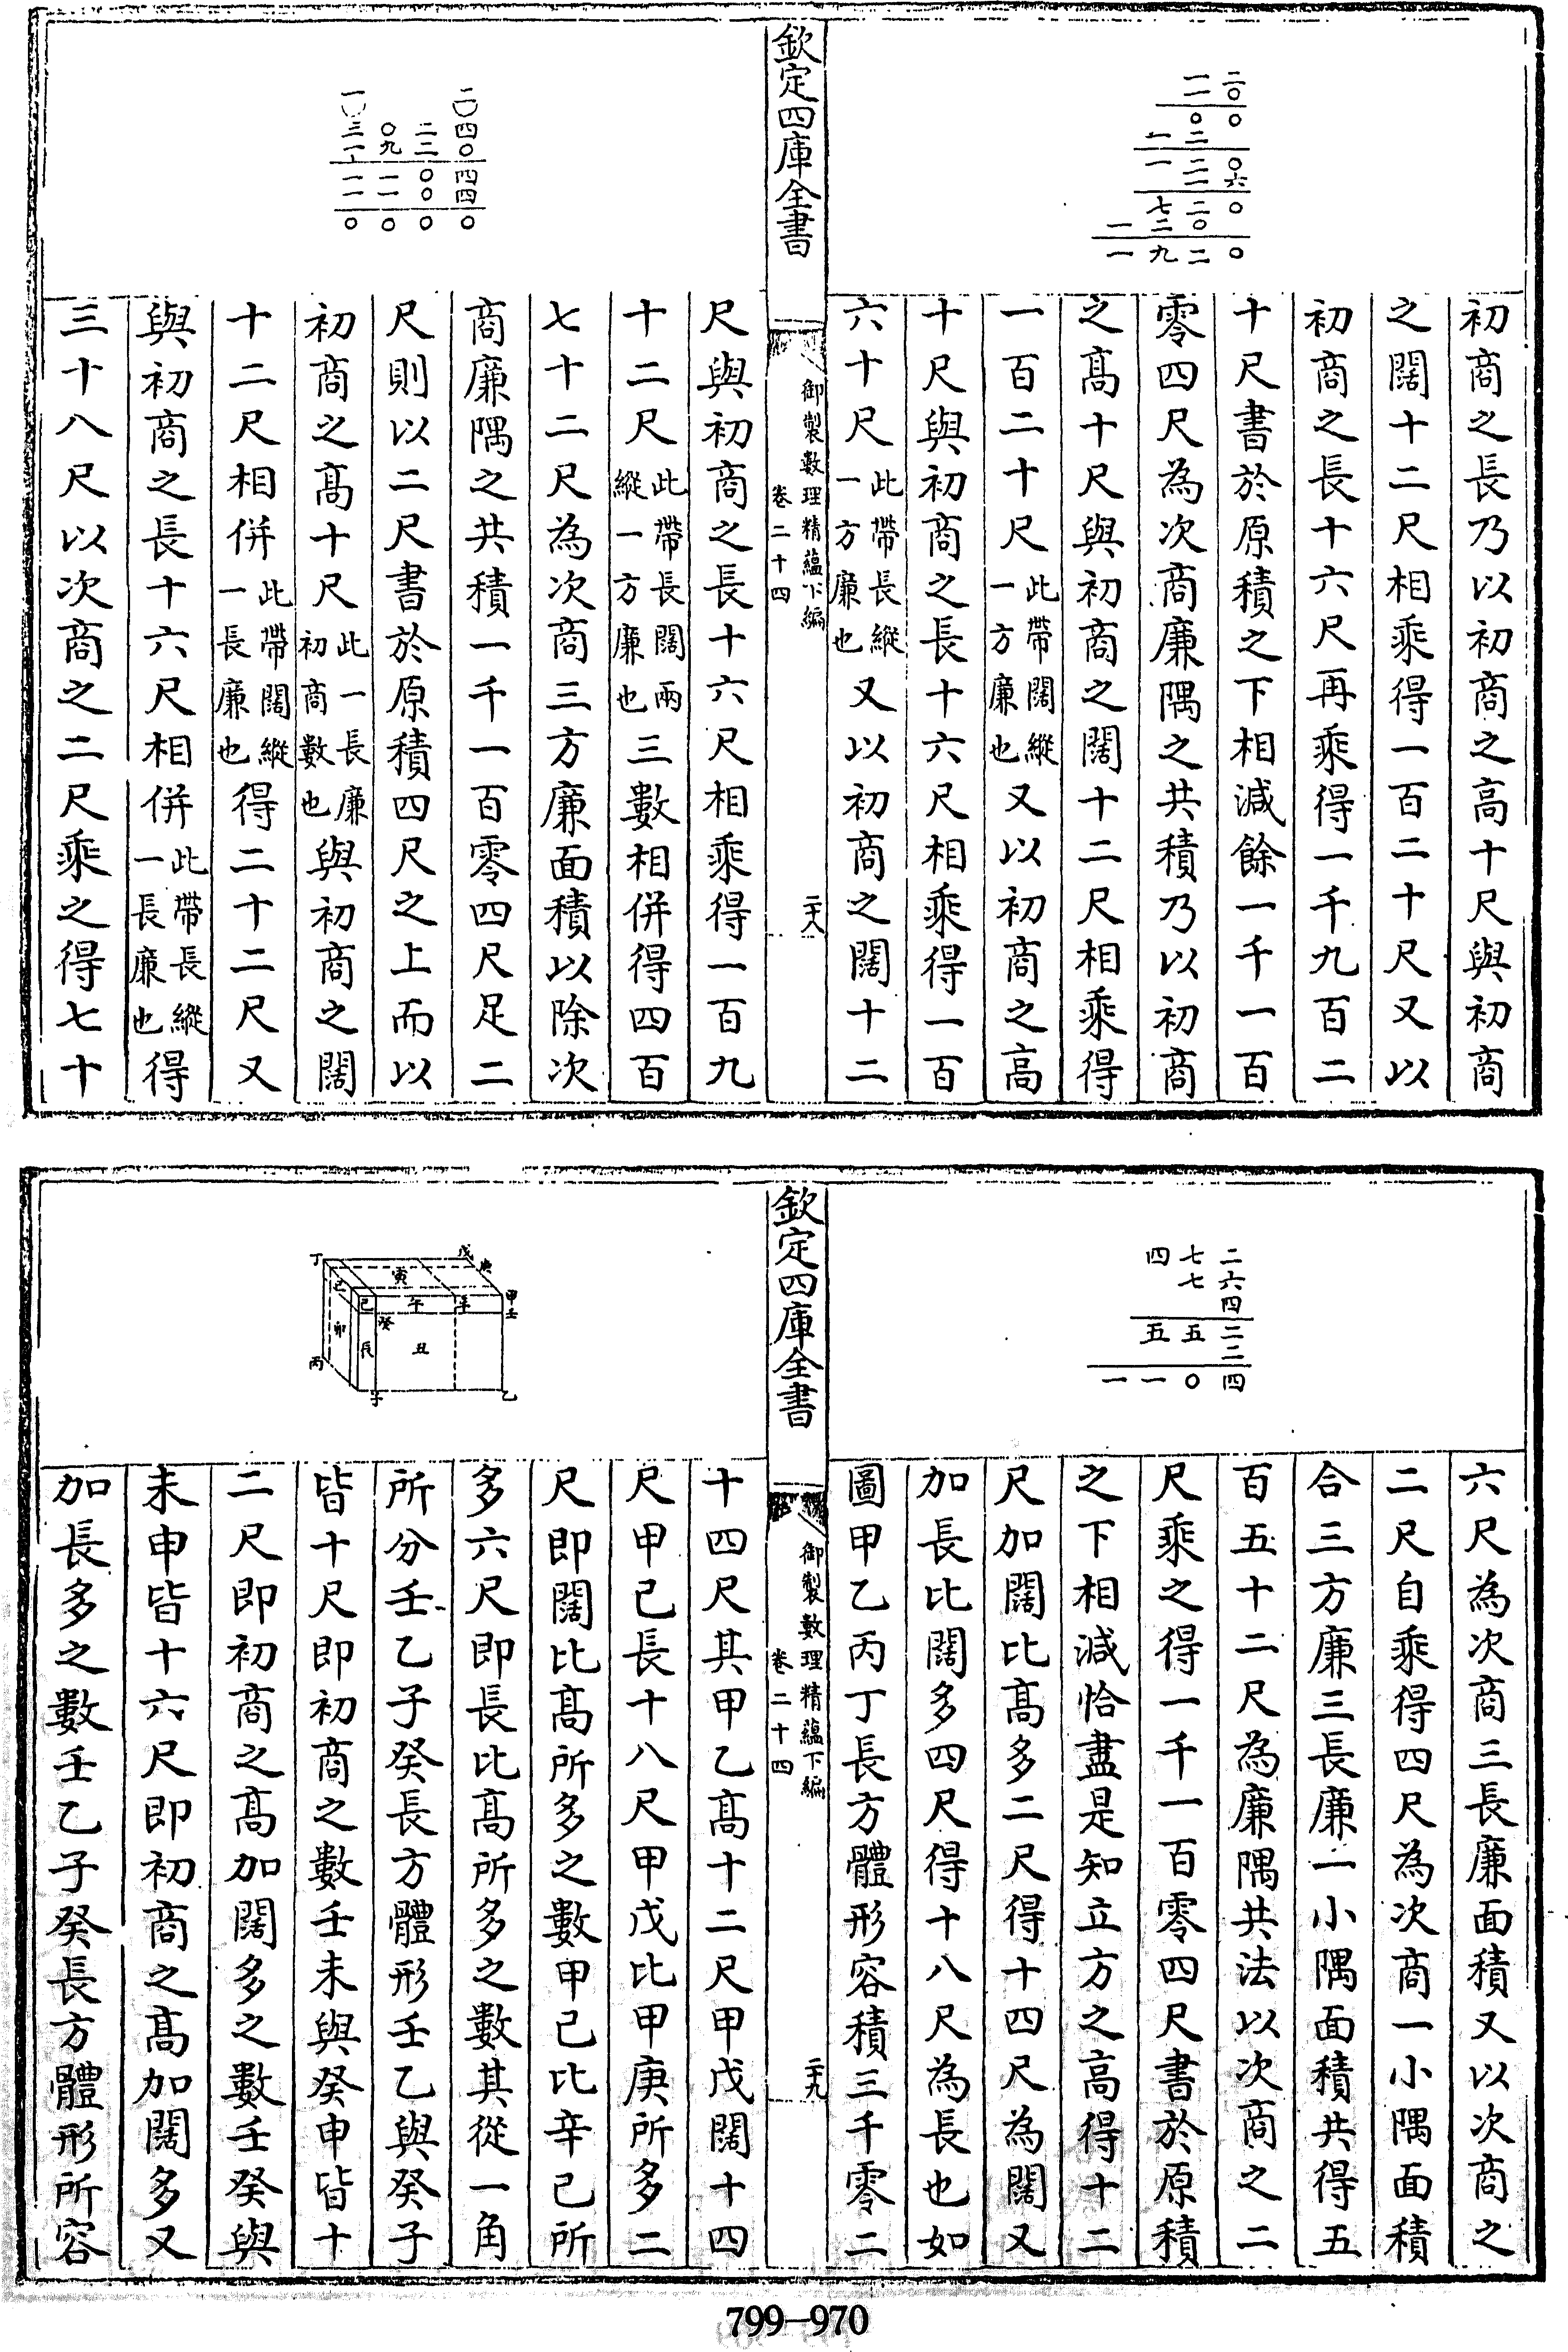 一二
一〇
〇〇
一二
一二〇
一六
七二〇
一二〇
一九二〇
初商之長乃以初商之高十尺與初商
之闊十二尺相乘得一百二十尺又以
初商之長十六尺再乘得一千九百二
十尺書於原積之下相減餘一千一百
零四尺為次商廉隅之共積乃以初商
之高十尺與初商之闊十二尺相乘得
一百二十尺此帶闊縱一方廉也又以初商之高
十尺與初商之長十六尺相乘得一百
六十尺此帶長縱一方廉也又以初商之闊十二
欽定四庫全書
御製數理精蘊下編
卷二十四
二十八
一 二
三〇二四
一九二〇
一一〇四
一一〇四
〇〇〇〇
尺與初商之長十六尺相乘得一百九
十二尺此帶長闊兩縱一方廉也三數相併得四百
七十二尺為次商三方廉面積以除次
商廉隅之共積一千一百零四尺足二
尺則以二尺書於原積四尺之上而以
初商之高十尺此一長廉初商數也與初商之闊
十二尺相併此帶闊縱一長廉也得二十二尺又
與初商之長十六尺相併此帶長縱一長廉也得
三十八尺以次商之二尺乘之得七十
四七二
七六
四
五五二
二
一一〇四
六尺為次商三長廉面積又以次商之
二尺自乘得四尺為次商一小隅面積
合三方廉三長廉一小隅面積共得五
百五十二尺為廉隅共法以次商之二
尺乘之得一千一百零四尺書於原積
之下相減恰盡是知立方之高得十二
尺加闊比高多二尺得十四尺為闊又
加長比闊多四尺得十八尺為長也如
圖甲乙丙丁長方體形容積三千零二
欽定四庫全書
御製數理精蘊下編
卷二十四
二十九
丁 戊 庚 甲 壬 寅 己 午 辛 癸 卯 辰 丑 丙 子 乙
十四尺其甲乙高十二尺甲戊闊十四
尺甲己長十八尺甲戊比甲庚所多二
尺即闊比高所多之數甲己比辛己所
多六尺即長比高所多之數其從一角
所分壬乙子癸長方體形壬乙與癸子
皆十尺即初商之數壬未與癸申皆十
二尺即初商之高加闊多之數壬癸與
未申皆十六尺即初商之高加闊多又
加長多之數壬乙子癸長方體形所容
799-970